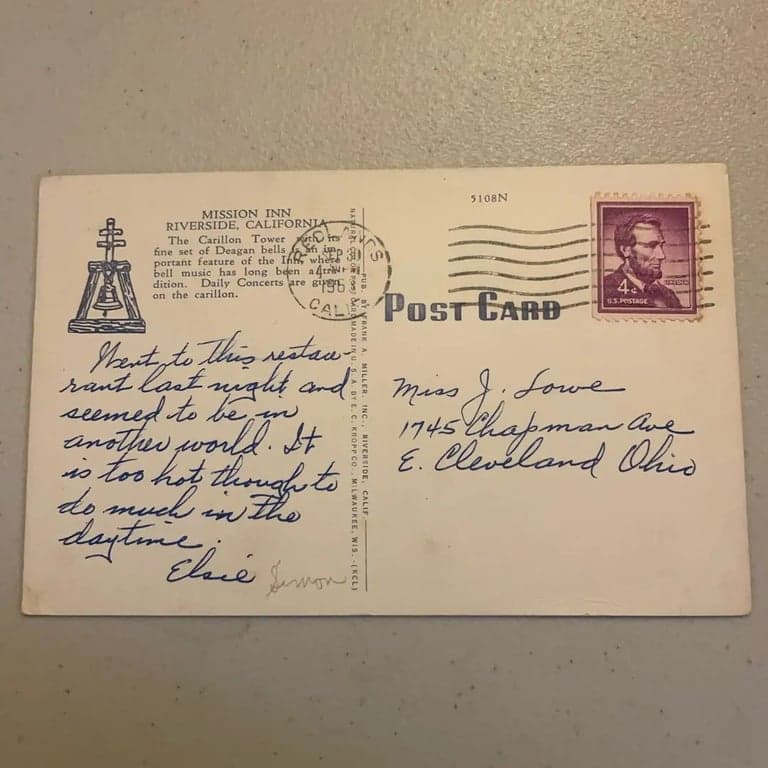 MISSION INN
RIVERSIDE, CALIFORNIA
The Carillon Tower with its
fine set of Deagan bells is an im-
portant feature of the Inn, where
bell music has long been a tra-
dition. Daily Concerts are given
on the carillon.
Went to this restau-
rant last night and
seemed to be in
another world. It
is too hot though to
do much in the
daytime.
Elsie Simon
NATURAL COLOR POST CARD MADE IN U. S. A. BY E. C. KROPP CO., MILWAUKEE, WIS. (KCL)
PUB. BY FRANK A. MILLER, INC., RIVERSIDE, CALIF.
5108N
SEP 30
CALIF
POST CARD
4¢
LINCOLN
U.S. POSTAGE
Miss J. Lowe
1745 Chapman Ave
E. Cleveland Ohio